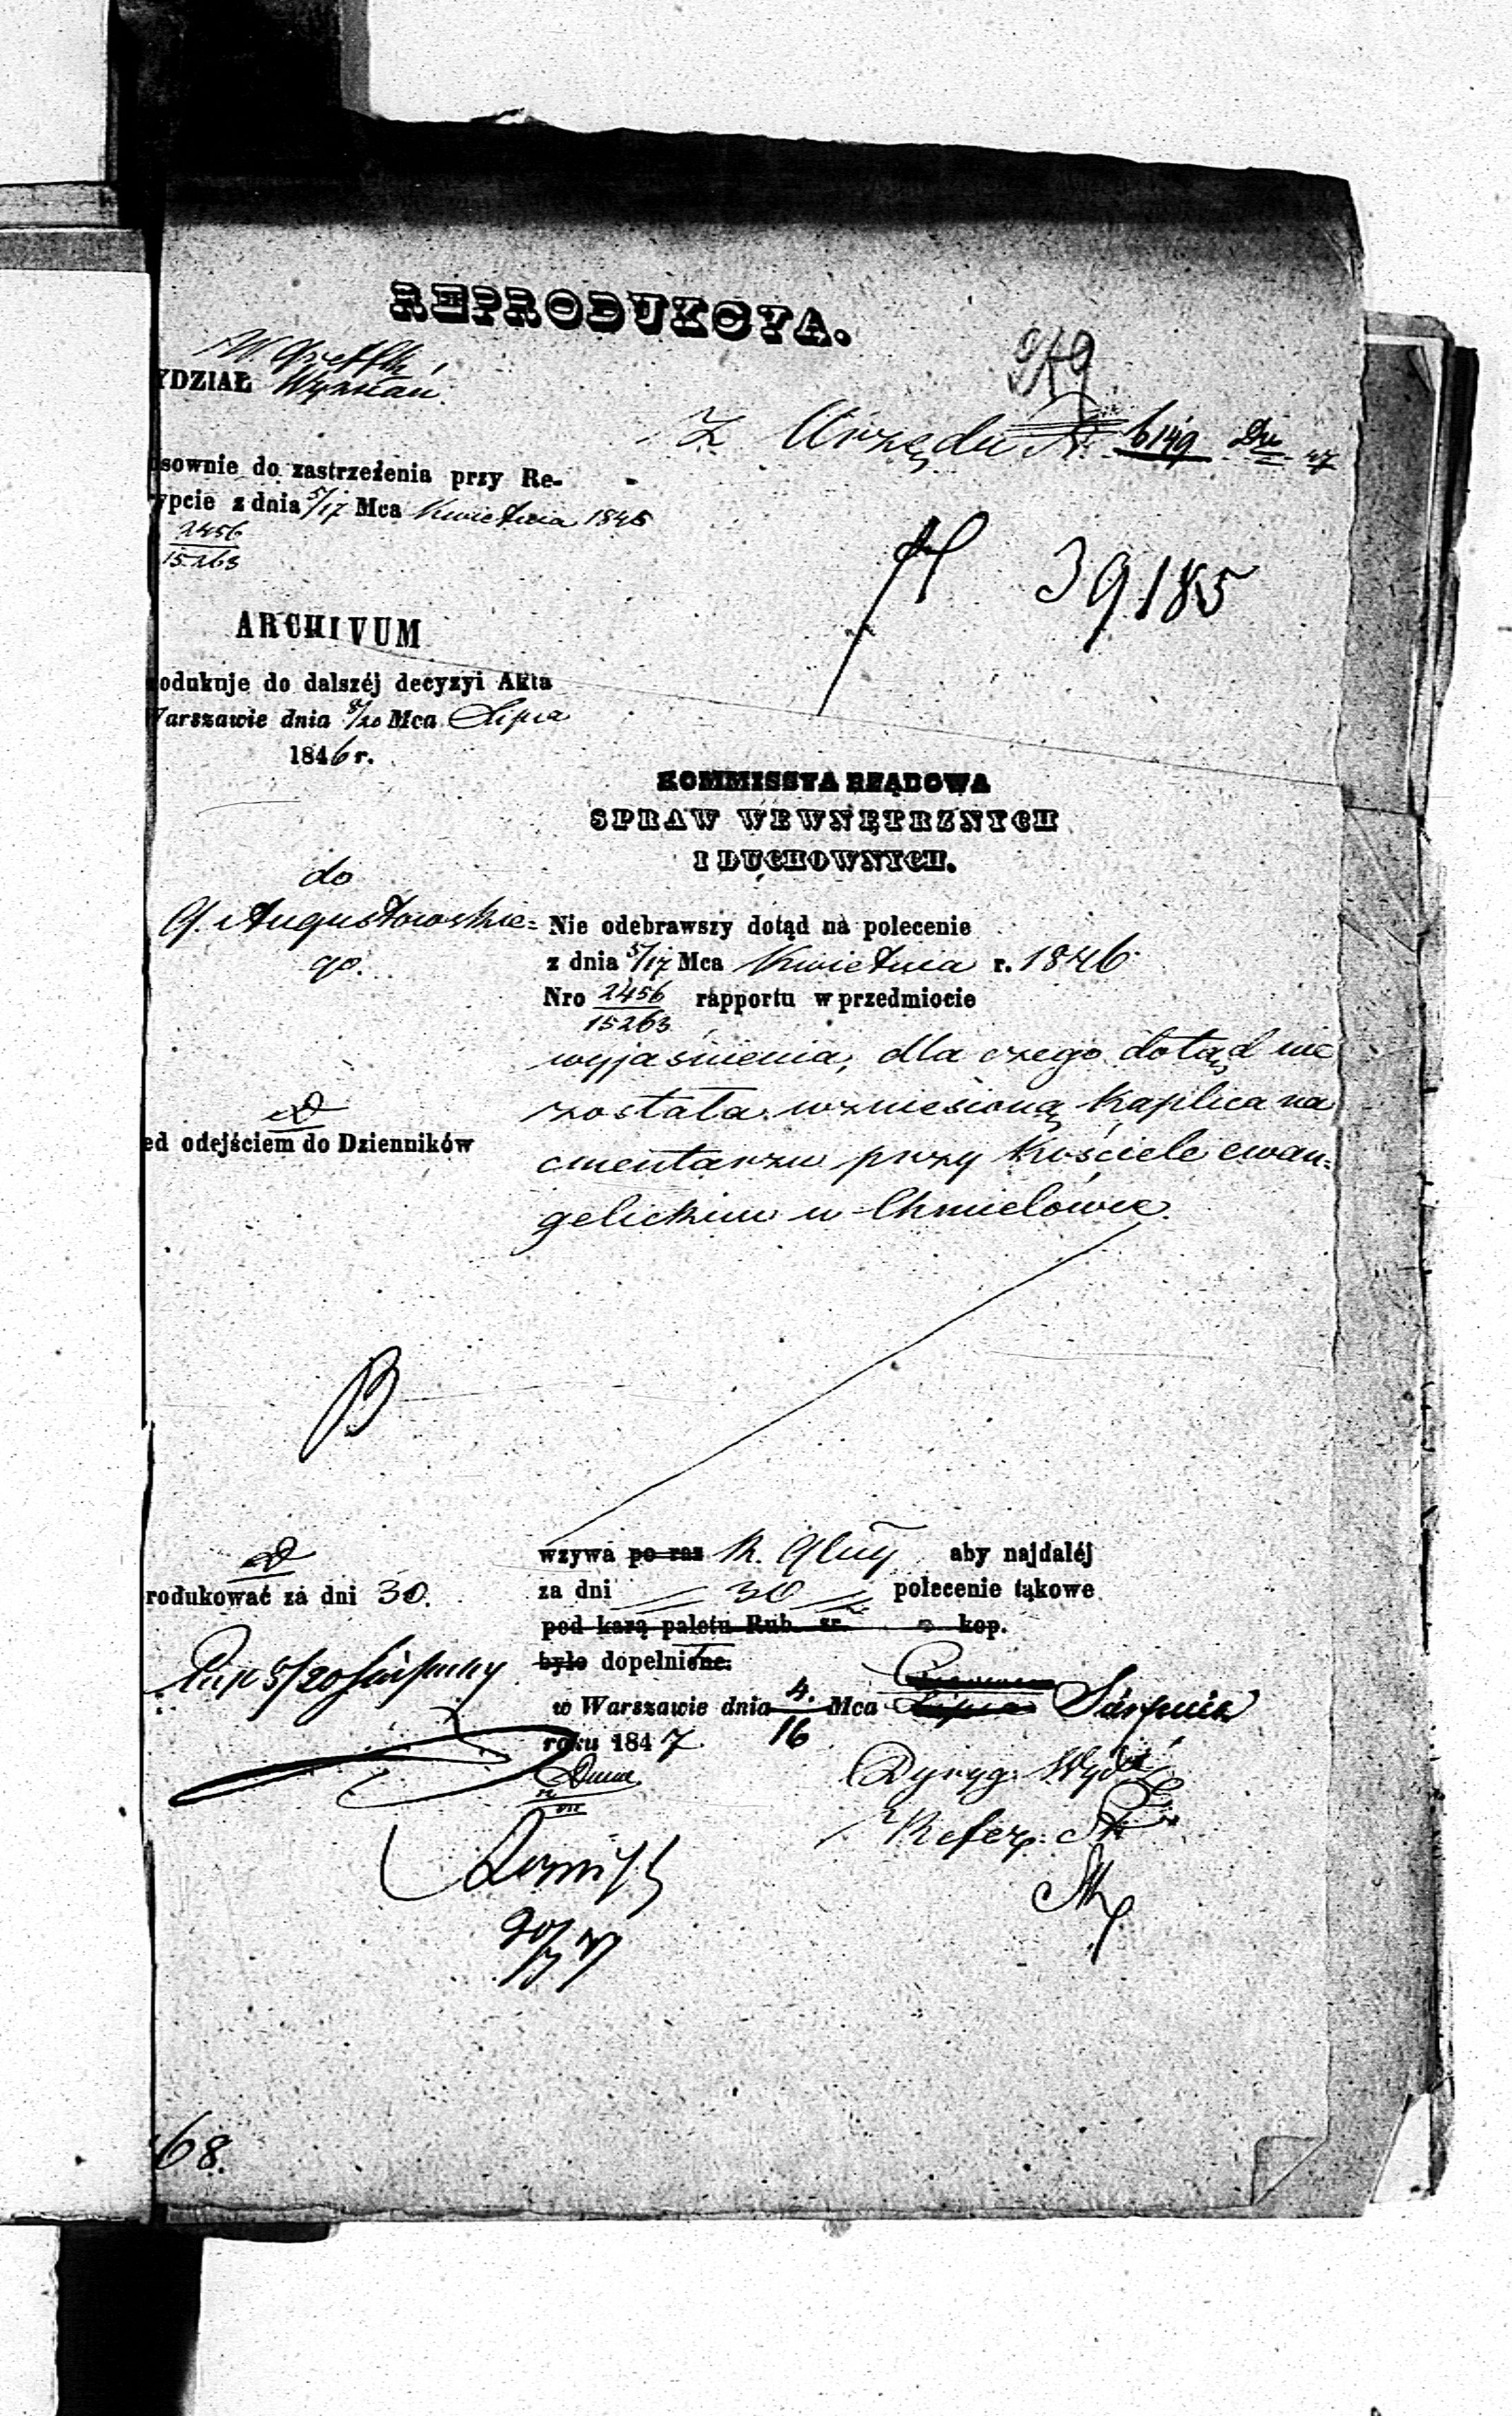 REPRODUKCYA.
YDZIAŁ Wyznań.
Z Urzędu N. 6149
sownie do zastrzeżenia przy Re-
ypcie z dnia 5/17 Mca Kwietnia 1846
2456
15263
39185
ARCHIVUM
odukuje do dalszéj decyzyi Akta
Warszawie dnia 8/20 Mca Lipca
1846 r.
KOMMISSYA RZĄDOWA
SPRAW WEWNĘTRZNYCH
I DUCHOWNYCH.
do
G. Augustowskie=
go.
Nie odebrawszy dotąd na polecenie
z dnia 5/17 Mca Kwietnia r. 1846
Nro 2456 rapportu w przedmiocie
15263
wyjaśnienia, dla czego dotąd nie
została wzniesioną kaplica na
cmentarzu przy kościele ewan=
gelickim w Chmielówce.
ed odejściem do Dzienników
wzywa po raz R. Guy aby najdaléj
za dni 30 polecenie takowe
pod karą paletu Rub. sr. kop.
było dopełnione.
rodukować za dni 30.
w Warszawie dnia 4. Mca Lipca Sierpnia
16
roku 1847
Dyryg. Wydz
Refer.
20/7 47
68.